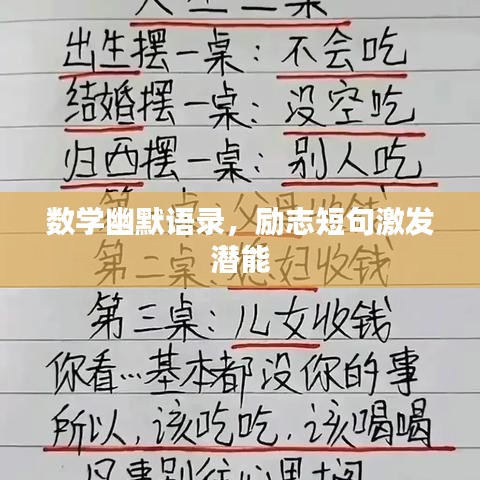 出生摆一桌：不会吃
结婚摆一桌：没空吃
归西摆一桌：别人吃
数学幽默语录，励志短句激发
潜能
第二桌：妇收钱
第三桌：儿女收钱
你看…基本都没你的事
所以，该吃吃，该喝喝